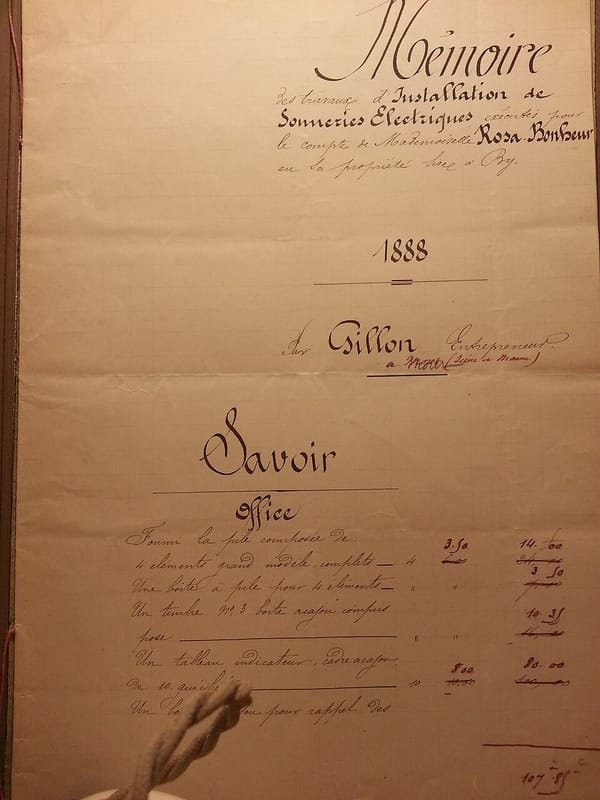 Mémoire
des travaux d'Installation de
Sonneries Electriques exécutés pour
le compte de Mademoiselle Rosa-Bonheur
en sa propriété sise à By.
1888
Par Gillon Entrepreneur.
à (Seine et Marne)
Savoir
Office
Fourni la pile composée de 3.50 14.00
4 éléments grand modèle complets — 4
Une boîte à pile pour 4 éléments — " " 3 50
Un timbre No. 3 boîte acajou compris 10.35
pose — " "
Un tableau indicateur, cadre acajou 8 00 80.00
de 10 guichets — 10 10,00 100,00
Un pour rappel des
107 85